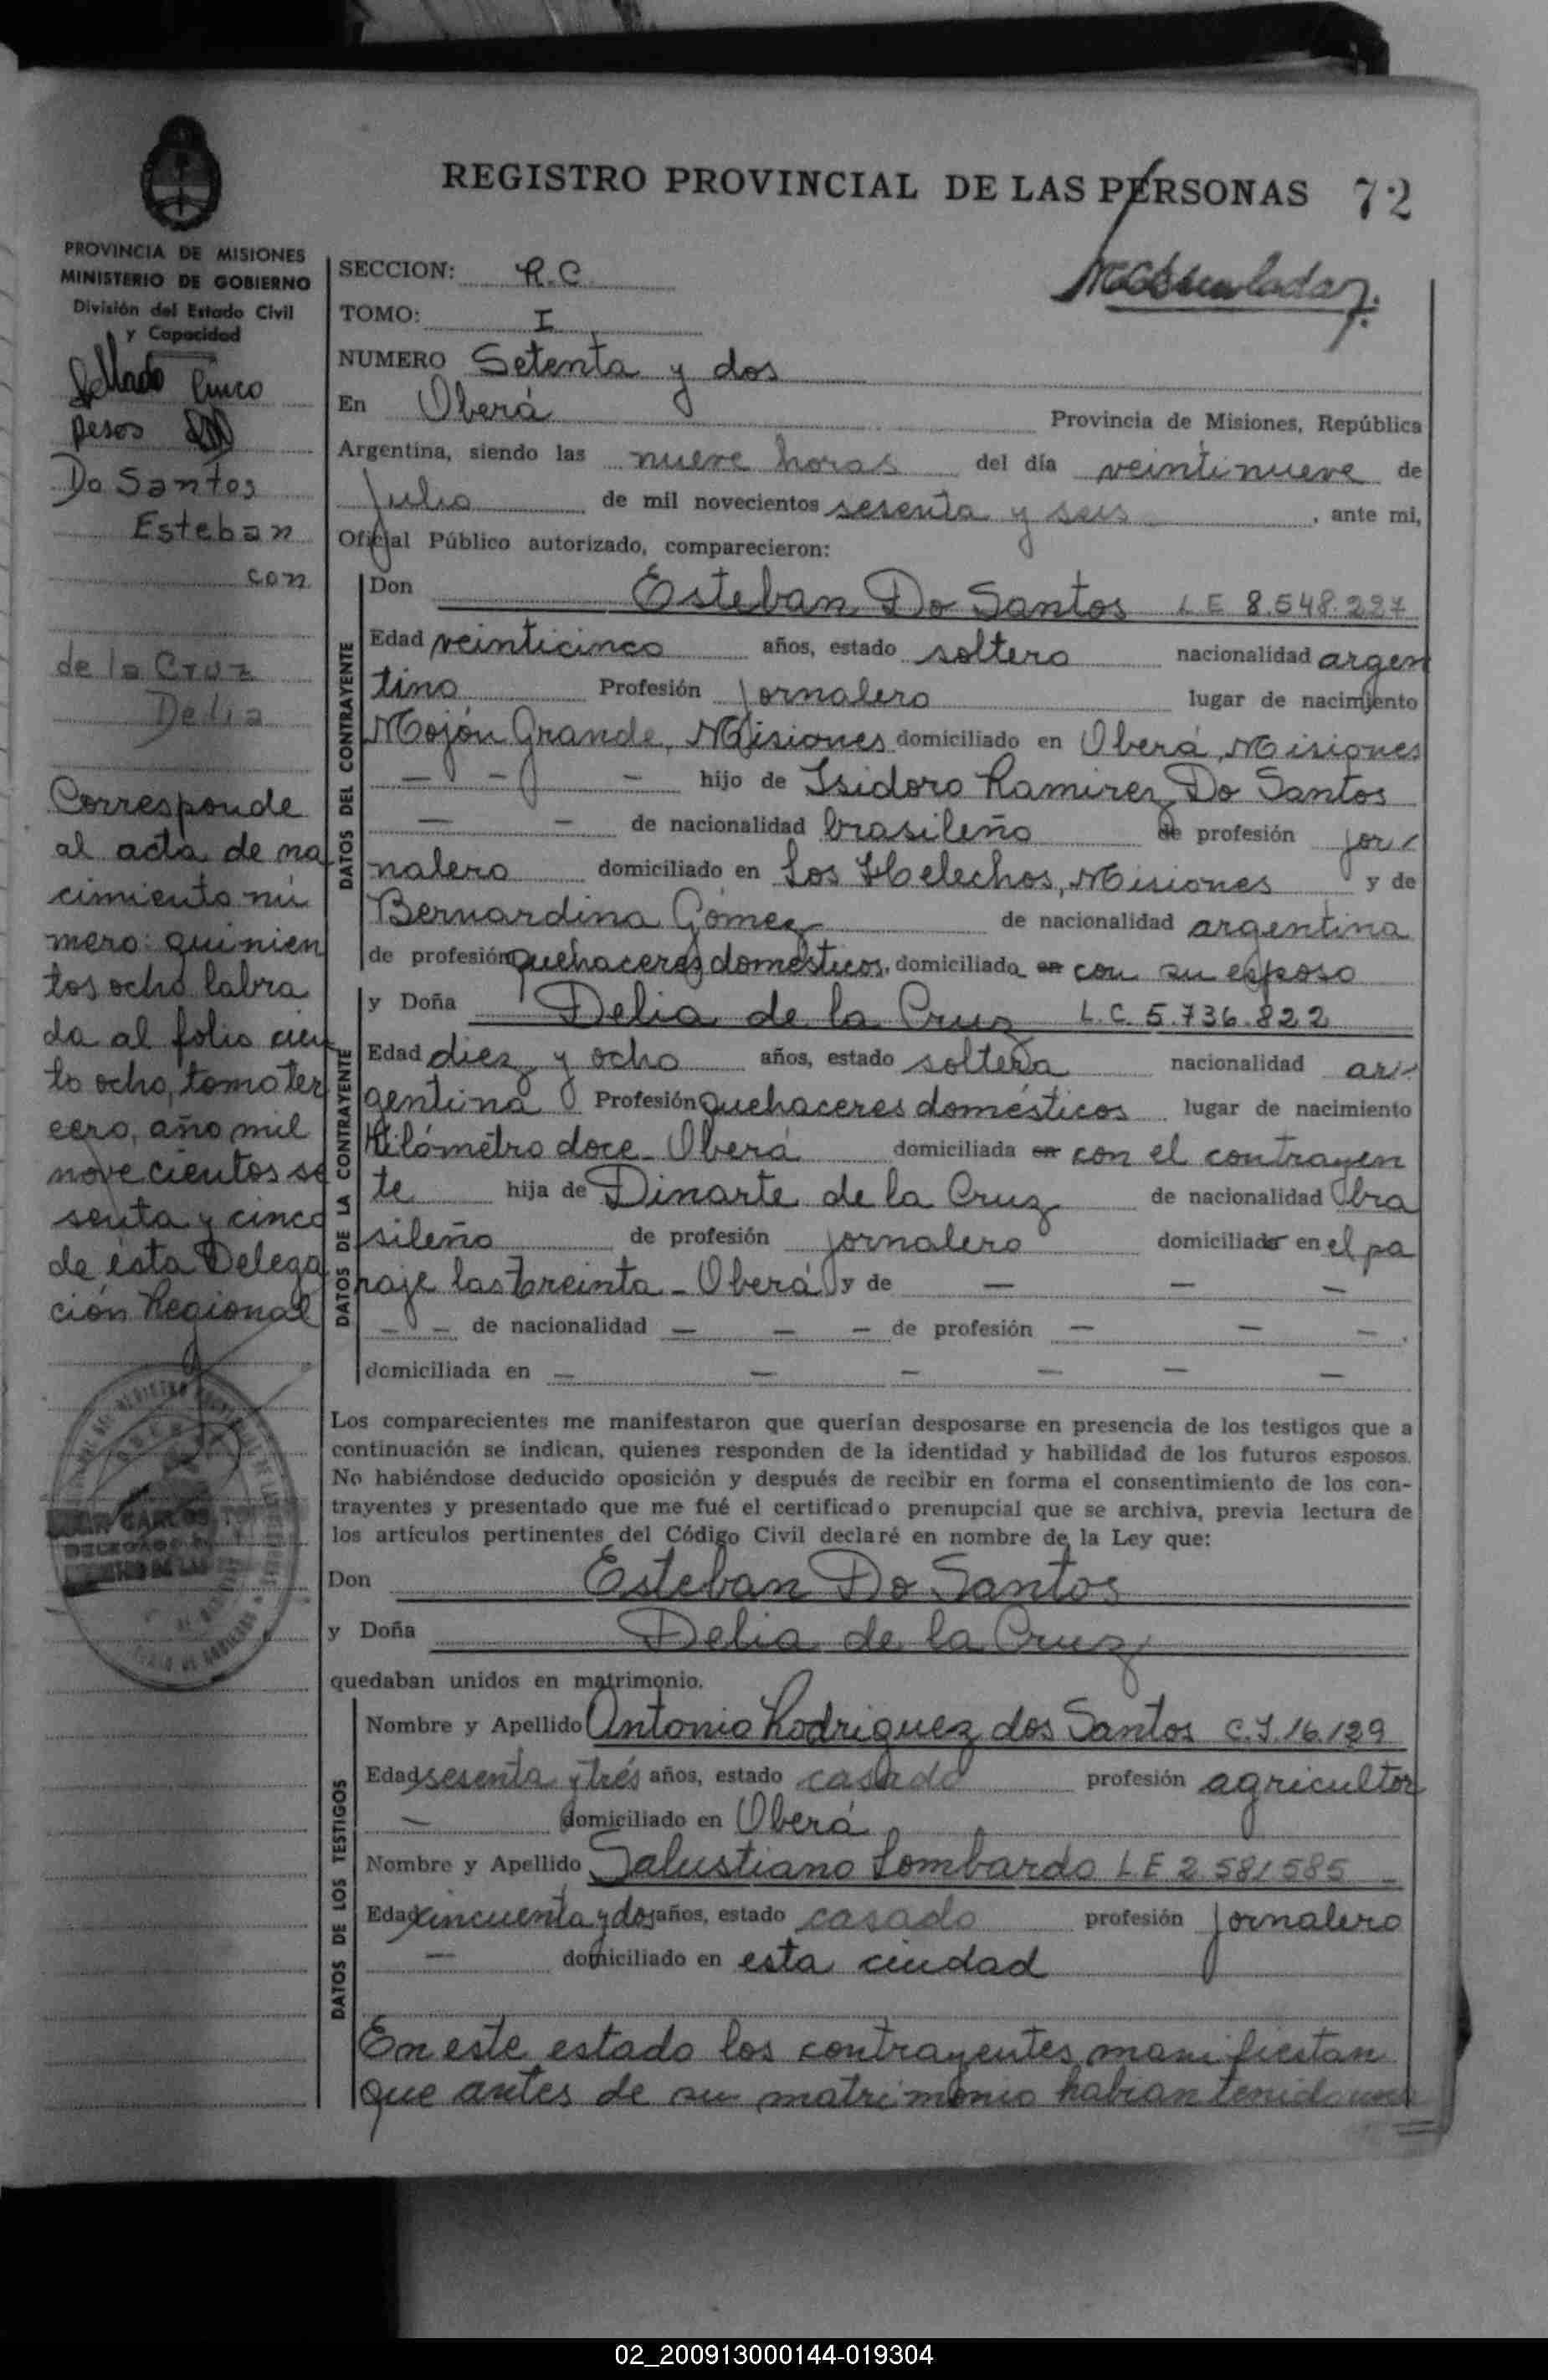 REGISTRO PROVINCIAL DE LAS PERSONAS 72
PROVINCIA DE MISIONES
MINISTERIO DE GOBIERNO
División del Estado Civil
y Capacidad
Sellado Cinco
pesos
Do Santos
Esteban
con
de la Cruz
Delia
Corresponde
al acta de na
cimiento nú
mero: quinien
tos ocho labra
da al folio cien
to ocho, tomo ter
cero, año mil
novecientos se
senta y cinco
de ésta Delega
ción Regional
SECCION: R.C.
TOMO: I
NUMERO Setenta y dos
En Oberá Provincia de Misiones, República
Argentina, siendo las nueve horas del día veintinueve de
Julio de mil novecientos sesenta y seis, ante mi,
Oficial Público autorizado, comparecieron:
DATOS DEL CONTRAYENTE
Don Esteban Do Santos LE 8.548.227
Edad veinticinco años, estado soltero nacionalidad argen
tino Profesión jornalero lugar de nacimiento
Mojón Grande, Misiones domiciliado en Oberá, Misiones
— — — hijo de Isidoro Ramirez Do Santos
— — de nacionalidad brasileño de profesión jor
nalero domiciliado en Los Helechos, Misiones y de
Bernardina Gómez de nacionalidad argentina
de profesión quehaceres domésticos, domiciliada en con su esposo
DATOS DE LA CONTRAYENTE
y Doña Delia de la Cruz L.C. 5.736.822
Edad diez y ocho años, estado soltera nacionalidad ar
gentina Profesión Quehaceres domésticos lugar de nacimiento
Kilómetro doce - Oberá domiciliada en con el contrayen
te hija de Dinarte de la Cruz de nacionalidad bra
sileño de profesión jornalero domiciliado en el pa
raje las treinta - Oberá y de — — —
— — de nacionalidad — — — de profesión — — —
domiciliada en — — — — — —
Los comparecientes me manifestaron que querían desposarse en presencia de los testigos que a
continuación se indican, quienes responden de la identidad y habilidad de los futuros esposos.
No habiéndose deducido oposición y después de recibir en forma el consentimiento de los con-
trayentes y presentado que me fué el certificado prenupcial que se archiva, previa lectura de
los artículos pertinentes del Código Civil declaré en nombre de la Ley que:
Don Esteban Do Santos
y Doña Delia de la Cruz
quedaban unidos en matrimonio.
DATOS DE LOS TESTIGOS
Nombre y Apellido Antonio Rodriguez dos Santos C.I. 16.129
Edad sesenta y trés años, estado casado profesión agricultor
— domiciliado en Oberá
Nombre y Apellido Salustiano Lombardo LE 2.581.585
Edad cincuenta y dos años, estado casado profesión jornalero
— domiciliado en esta ciudad
En este estado los contrayentes manifiestan
que antes de su matrimonio habian tenido una
02_200913000144-019304